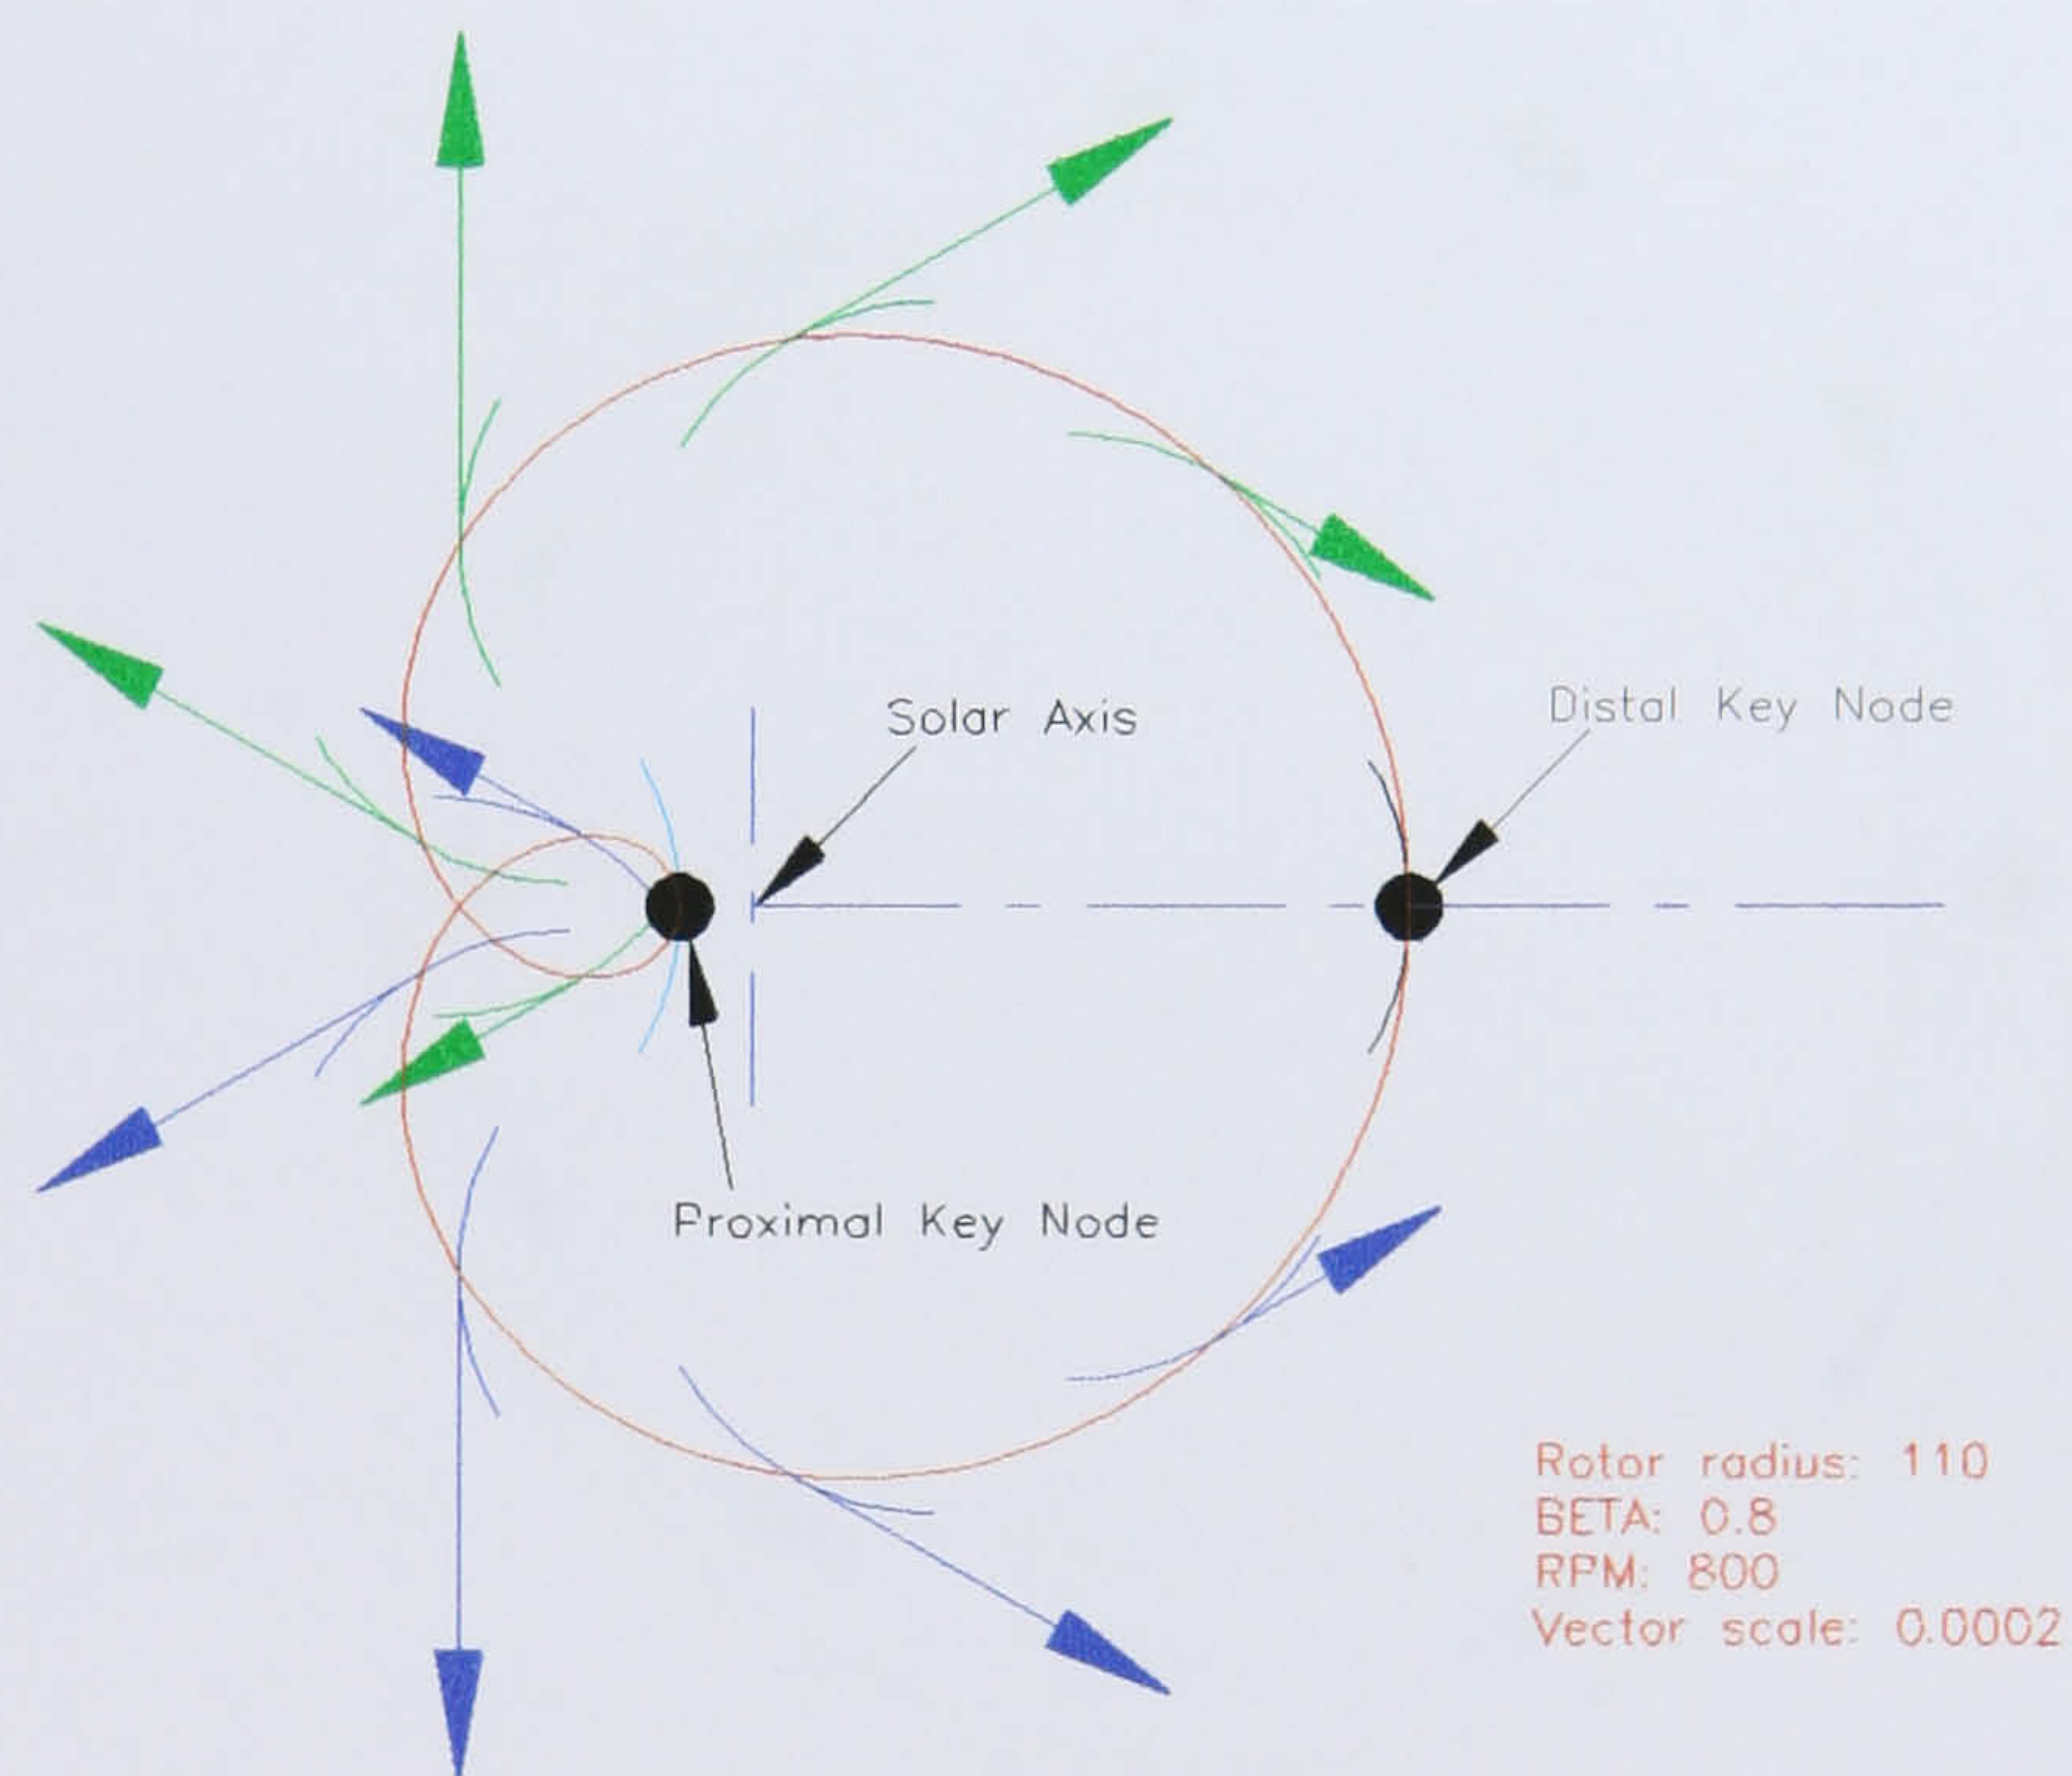 Solar Axis
Distal Key Node
Proximal Key Node
Rotor radius: 110
BETA: 0.8
RPM: 800
Vector scale: 0.0002